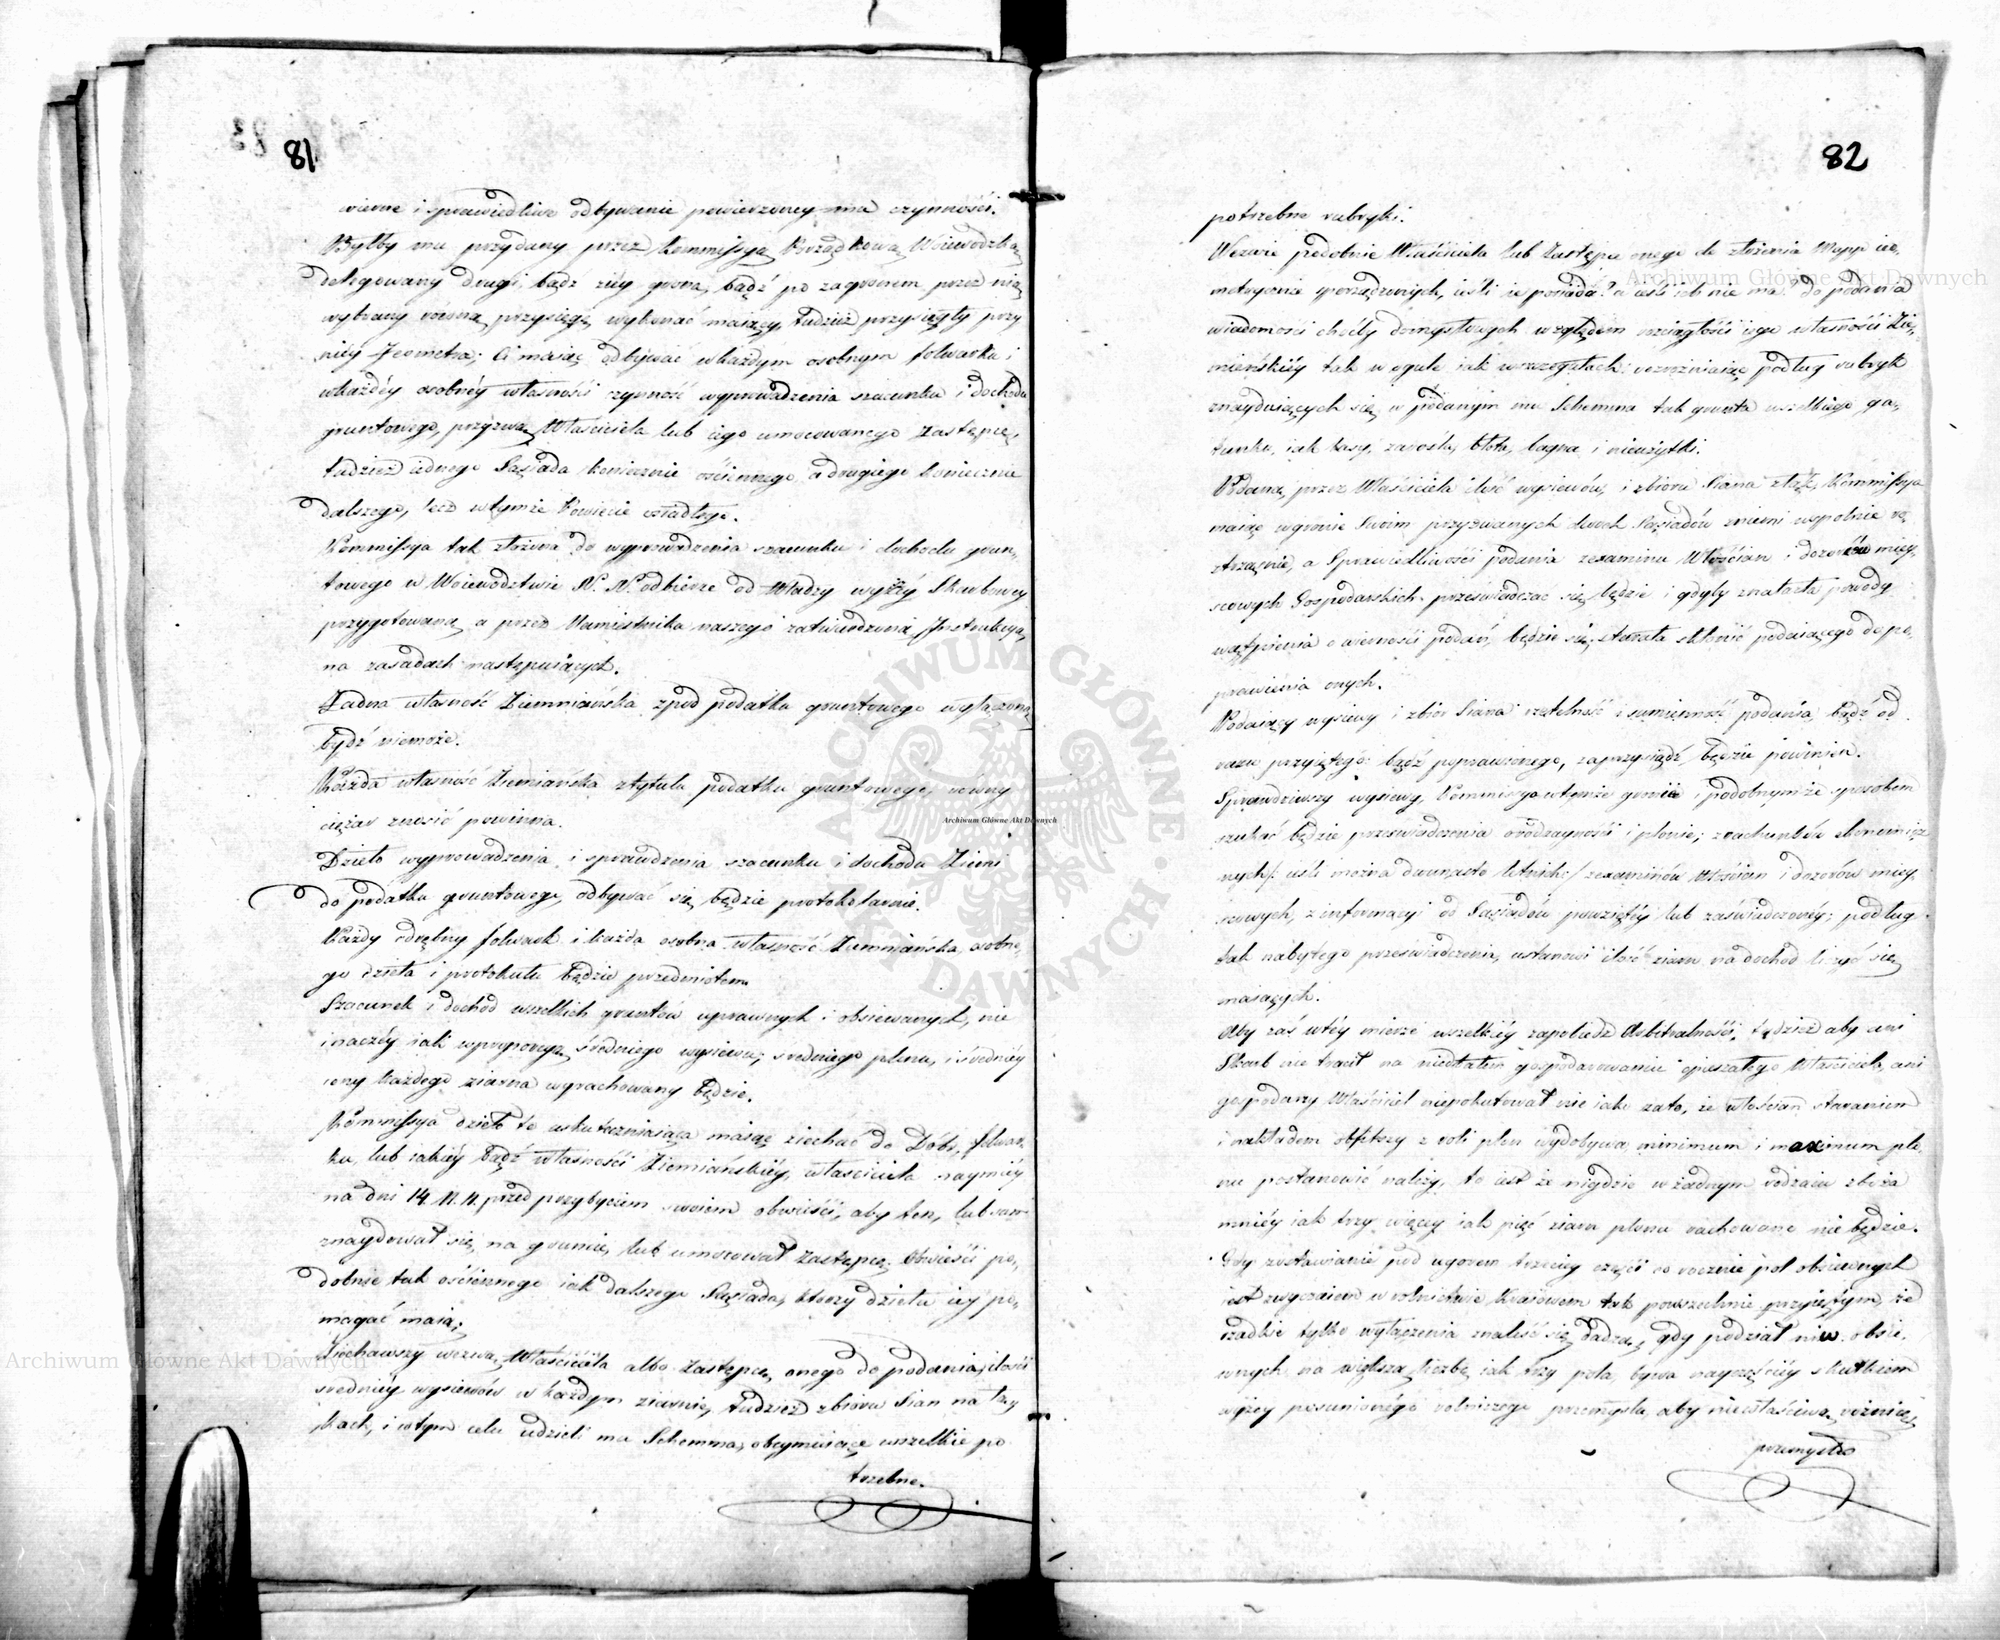 81
wierne i sprawiedliwe odbywanie powierzoney ma czynności.
Byłby mu przydany przez Kommissyą Rządkową Woiewodzką
delegowany drugi, bądź iéy grona, bądź po za gronem przez nią
wybrany równą przysięgę wykonać maiący, tudzież przysięgły przy
niéy Jeometra; Ci maiąc odbywać w każdym osobnym folwarku i
w każdéy osobnéy własności czynność wyprowadzenia szacunku i dochodu
gruntowego, przyzwą Właściciela lub iego umocowanego Zastępcę,
tudzież iednego Sąsiada koniecznie ościennego, a drugiego koniecznie
dalszego, lecz w tymże Powiecie osiadłego.
Kommissya tak złożona do wyprowadzenia szacunku i dochodu grun-
towego w Woiewództwie N. N. odbierze od Władzy wyższéy Skarbowey
przygotowaną a przez Namiestnika naszego zatwierdzoną Instrukcyą,
na zasadach następuiących.
Żadna własność Ziemniańska zpod podatku gruntowego wyłączoną
bydź niemoże.
Każda własność Ziemiańska z tytułu podatku gruntowego, równy
ciężar znosić powinna.
Dzieło wyprowadzenia i sprawdzenia szacunku i dochodu Ziemi
do podatku gruntowego, odbywać się będzie protokolarnie.
Każdy odrębny folwark i każda osobna własność Ziemniańska, osobne-
go dzieła i protokułu będzie przedmiotem
Szacunek i dochód wszelkich gruntów uprawnych i obsiewanych, nie
inaczéy iak w proporcyą średniego wysiewu, średniego plonu, i średniéy
ceny każdego ziarna wyrachowany będzie.
Kommissya dzieło to uskuteczniaiąca maiąc ziechać do Dóbr, folwar-
ku, lub iakiéy bądź własności Ziemiańskiéy, właściciela naymniéy
na dni 14 N. N. przed przybyciem swoiem obwieści, aby ten, lub sam
znaydował się na gruncie, lub umocował Zastępcę. Obwieści po-
dobnie tak ościennego iak dalszego Sąsiada, którzy dziełu iéy po-
magać maią.
Ziechawszy wezwie Właściciela albo Zastępcę onego do podania, ilości
średniéy wysiewów w każdym ziarnie, tudzież zbioru Sian na łą-
kach, i w tym celu udzieli mu Schemma, obeymuiące wszelkie po-
trzebne.
82
potrzebne rubryki.
Wezwie podobnie Właściciela lub Zastępcę onego do złożenia Mapp ieo-
metrycznie sporządzonych, ieśli ie posiada? a ieśli ich nie ma? do podania
wiadomości choćby domysłowych względem rozciągłości iego własności Zie-
mieńskiéy tak w ogule iak w szczegułach; rozróżniaiąc podług rubryk
znayduiących się w podanym mu Schemma tak grunta wszelkiego ga-
tunku, iak lasy, zarośla, błota, bagna i nieużytki.
Podaną przez Właściciela ilość wysiewów, i zbioru Siana złoży, Kommissya
maiąc w gronie swoim przyzwanych dwóch Sąsiadów z niemi wspólnie ro-
ztrząśnie, o Sprawiedliwości podania z examinu Włościan i dozorców miey-
scowych Gospodarskich przeświadczać się będzie i gdyby znalazła powody
wątpienia o wierności podań, będzie się starała skłonić podaiącego do po-
prawienia onych.
Podaiący wysiewy i zbiór Siana rzetelność i sumienność podania, bądź od
razu przyiętego: bądź poprawionego, zaprzysiądź będzie powinien.
Sprawdziwszy wysiewy, Kommissya w tymże gronie i podobnymże sposobem
szukać będzie przeświadczenia o rodzayności i plonie; z rachunków ekonomicz-
nych /: ieśli można dwunasto letnich :/ z examinów Włościan i dozorców miey-
scowych, z informacyi od Sąsiadów powziętéy lub zaświadczonéy; podług
tak nabytego przeświadczenia, ustanowi ilość ziarn na dochód liczyć się
maiących.
Aby zaś w téy mierze wszelkiéy zapobiedz Arbitralności, tudzież aby ani
Skarb nie tracił na niedbałem gospodarowaniu opieszałego Właściciela, ani
gospodarny Właściciel niepokutował nie iako za to, że własnem staraniem
i nakładem obfitszy z roli plon wydobywa, minimum i maximum plo-
nu postanowić należy, to iest że nigdzie w żadnym rodzaiu zboża
mniéy iak trzy, więcéy iak pięć ziarn plonu rachowane nie będzie.
Gdy zostawianie pod ugorem trzeciéy części co rocznie pól obsiewnych
iest zwyczaiem w rolnictwie Kraiowem tak powszechnie przyiętym, że
rzadkie tylko wyłączenia znaleść się dadzą, gdy podział niw obsie-
wnych na większą liczbę iak trzy pola, bywa nayczęściéy skutkiem
wyżéy posunionego rolniczego przemysłu, aby niewłaściwą różnicą
przemysło